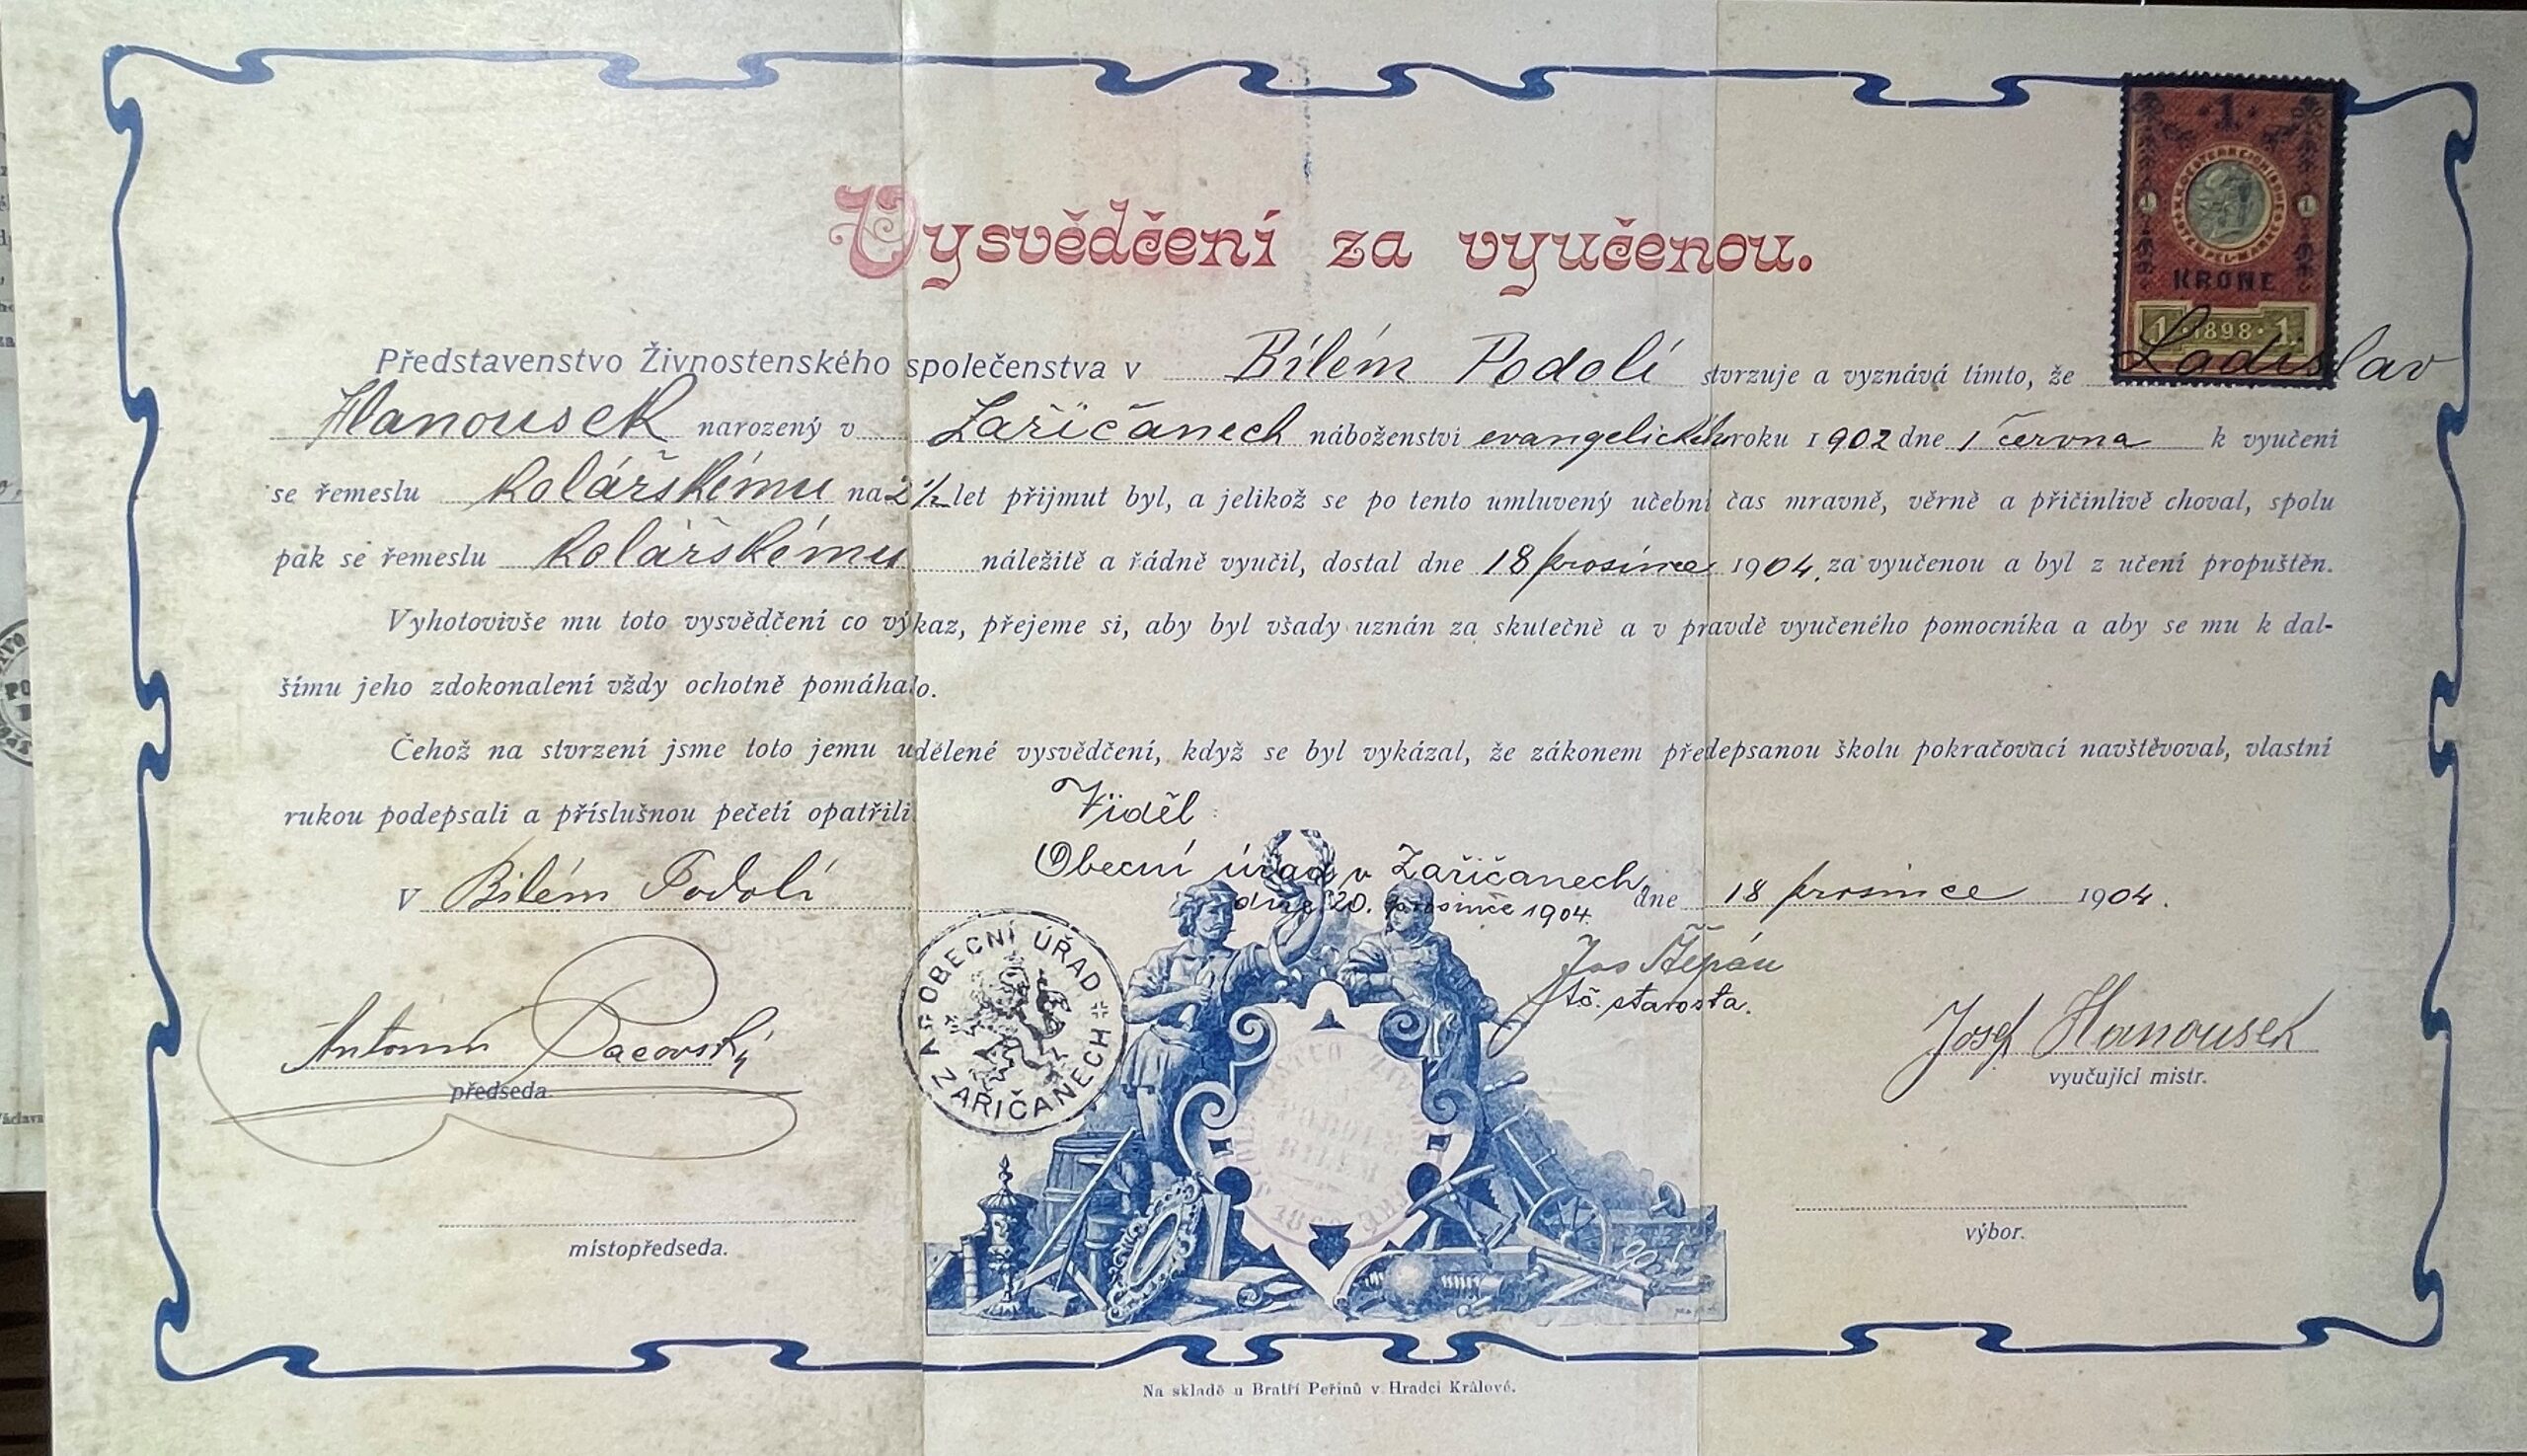 1
KRONE
1·1898·1
Vysvědčení za vyučenou.
Představenstvo Živnostenského společenstva v Bílém Podolí stvrzuje a vyznává tímto, že Ladislav
Hanousek narozený v Zaříčanech náboženství evangelického roku 1902 dne 1 června k vyučení
se řemeslu kolářskému na 2 1/2 let přijmut byl, a jelikož se po tento umluvený učební čas mravně, věrně a přičinlivě choval, spolu
pak se řemeslu kolářskému náležitě a řádně vyučil, dostal dne 18 prosince 1904 za vyučenou a byl z učení propuštěn.
Vyhotovivše mu toto vysvědčení co výkaz, přejeme si, aby byl všady uznán za skutečně a v pravdě vyučeného pomocníka a aby se mu k dal-
šímu jeho zdokonalení vždy ochotně pomáhalo.
Čehož na stvrzení jsme toto jemu udělené vysvědčení, když se byl vykázal, že zákonem předepsanou školu pokračovací navštěvoval, vlastní
rukou podepsali a příslušnou pečetí opatřili
Viděl:
Obecní úřad v Zaříčanech
V Bílém Podolí dne 18 prosince 1904.
dne 20. prosince 1904.
OBECNÍ ÚŘAD
ZAŘIČANECH
Jos Štěpán
starosta.
Antonín Pacovský
předseda.
Josef Hanousek
vyučující mistr.
místopředseda.
výbor.
Na skladě u Bratří Peřinů v Hradci Králové.